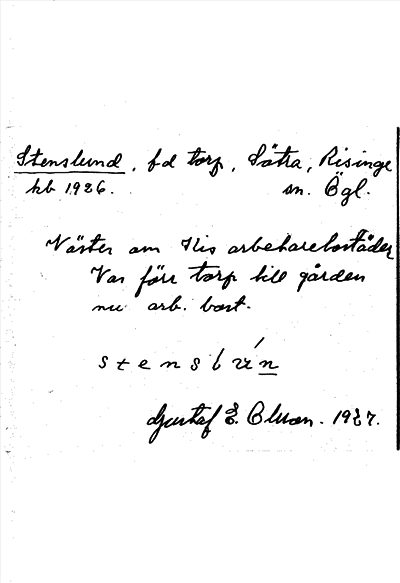 Stenslund, fd torp, Sätra, Risinge
hb 1926. sn. Ögl.
Väster om His arbetarebostäder
Var förr torp till gården
nu arb. bost.
stensbún
Gustaf E. Olsson. 1927.